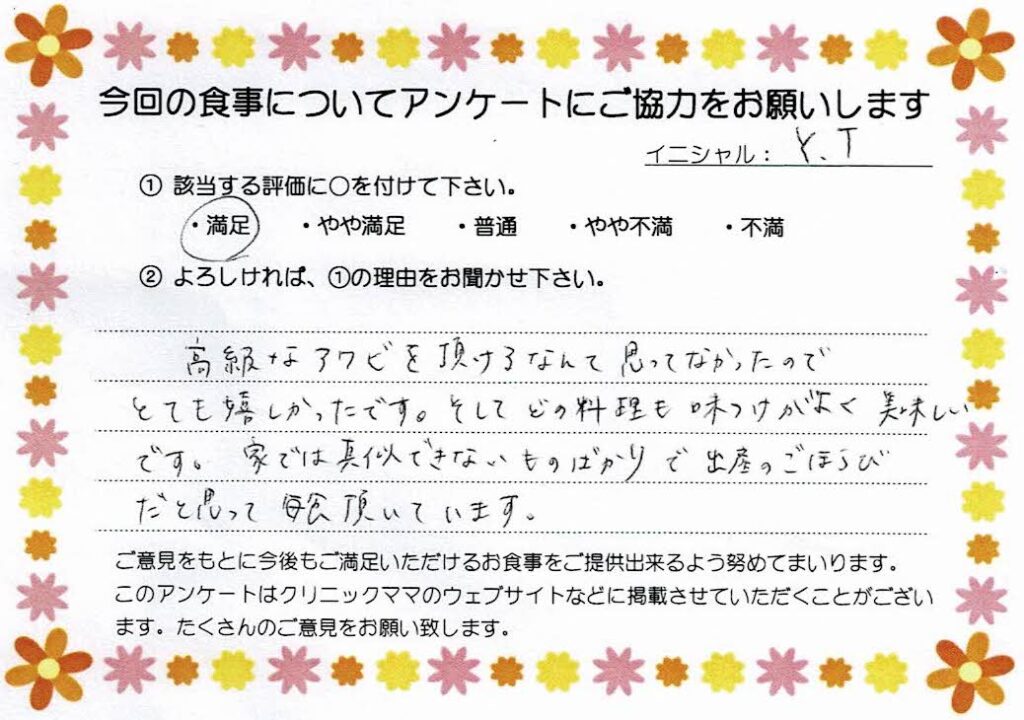 今回の食事についてアンケートにご協力をお願いします
イニシャル： Y.T
① 該当する評価に〇を付けて下さい。
・満足 ・やや満足 ・普通 ・やや不満 ・不満
② よろしければ、①の理由をお聞かせ下さい。
高級なアワビを頂けるなんて思ってなかったので
とても嬉しかったです。そしてどの料理も味つけがよく美味しい
です。家では真似できないものばかりで出産のごほうび
だと思って毎食頂いています。
ご意見をもとに今後もご満足いただけるお食事をご提供出来るよう努めてまいります。
このアンケートはクリニックママのウェブサイトなどに掲載させていただくことがござい
ます。たくさんのご意見をお願い致します。